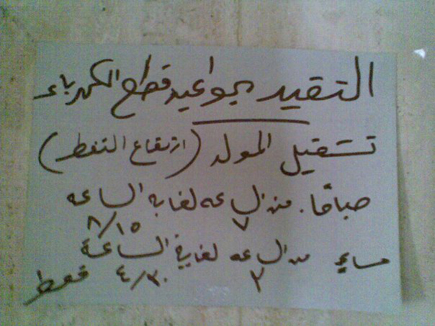 التقيد بمواعيد قطع الكهرباء
تشغيل المولد (ارتفاع النفط)
صباحاً. من الساعه ٧ لغاية الساعه ٨/١٥
مساءً من الساعه ٣ لغاية الساعة ٤/٣٠ فقط